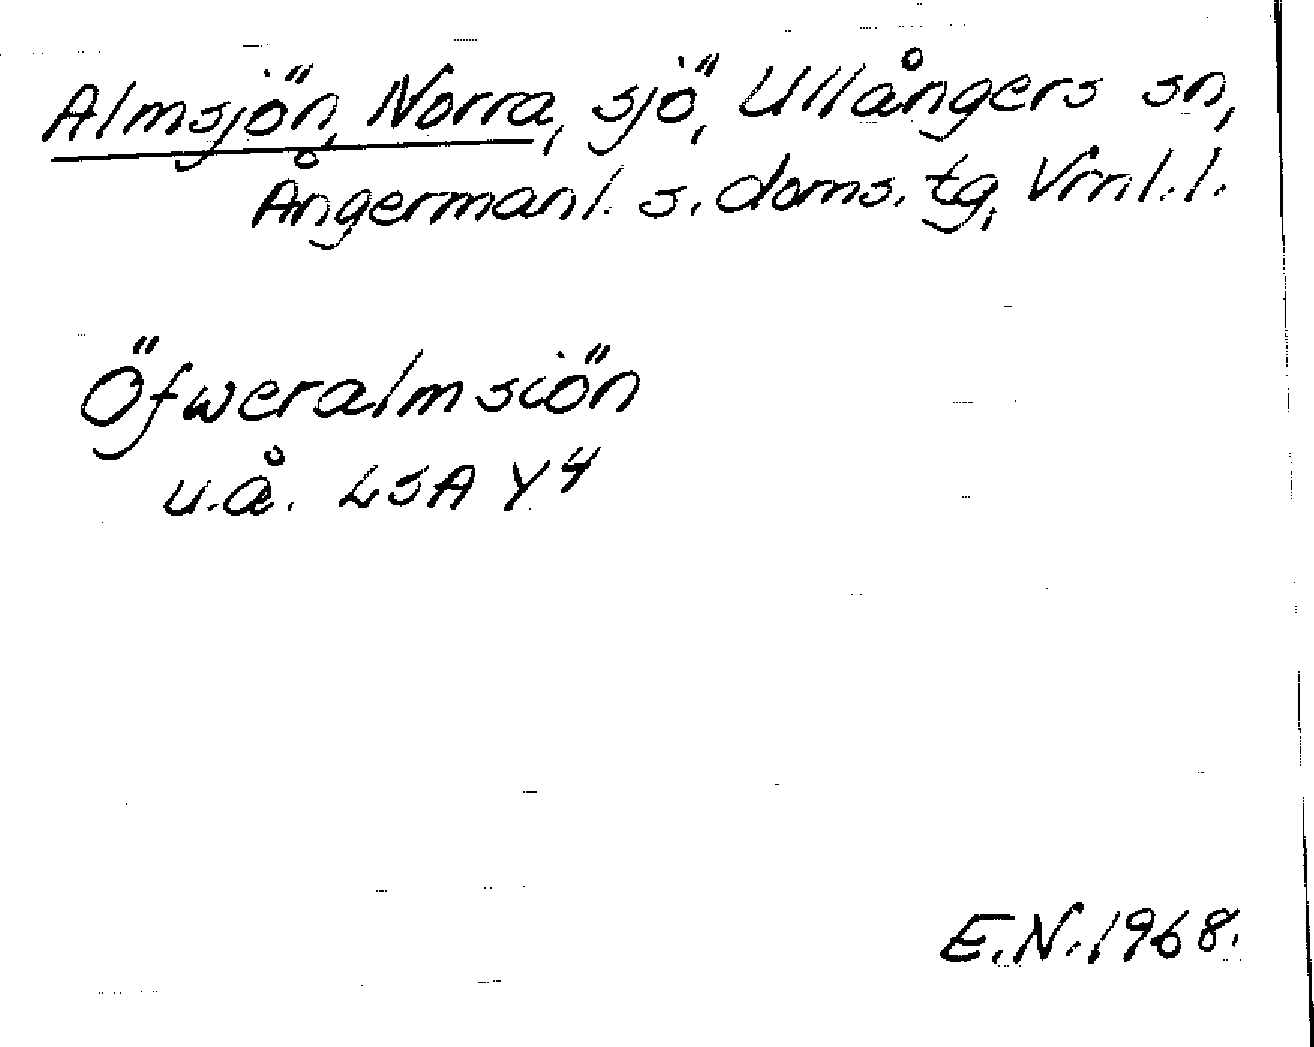 Almsjön, Norra, sjö, Ullångers sn,
Ångermanl. s. doms. tg, Vrnl. l.
Öfweralmsiön
u.å. LSA Y4
E.N. 1968.